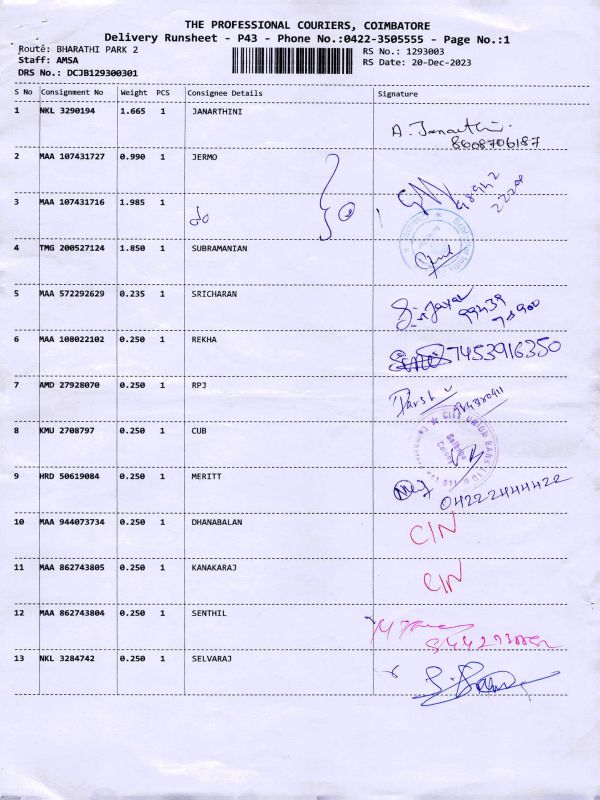 THE PROFESSIONAL COURIERS, COIMBATORE
Delivery Runsheet - P43 - Phone No.:0422-3505555 - Page No.:1
Route: BHARATHI PARK 2 RS No.: 1293003
Staff: AMSA RS Date: 20-Dec-2023
DRS No.: DCJB129300301
S No Consignment No Weight PCS Consignee Details Signature
1 NKL 3290194 1.665 1 JANARTHINI
A. Janarthini
8608706187
2 MAA 107431727 0.990 1 JERMO
3 MAA 107431716 1.985 1 do
4 TMG 200527124 1.850 1 SUBRAMANIAN
5 MAA 572292629 0.235 1 SRICHARAN
99439
78900
6 MAA 108022102 0.250 1 REKHA 7453916350
7 AMD 27928070 0.250 1 RPJ
8 KMU 2708797 0.250 1 CUB
CITY UNION BANK LTD
9 HRD 50619084 0.250 1 MERITT
04222444422
10 MAA 944073734 0.250 1 DHANABALAN C/N
11 MAA 862743805 0.250 1 KANAKARAJ C/N
12 MAA 862743804 0.250 1 SENTHIL
13 NKL 3284742 0.250 1 SELVARAJ